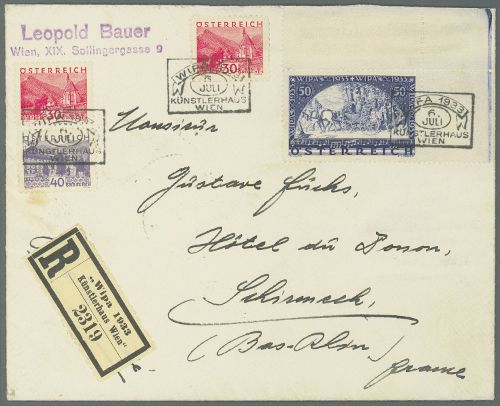 Leopold Bauer
Wien, XIX. Sollingergasse 9
ÖSTERREICH
30
ÖSTERREICH
30
WIPA
6
JULI
KÜNSTLERHAUS
WIEN
JULI
KÜNSTLERHAUS
WIEN
40
WIPA 1933
50
50
ÖSTERREICH
WIPA 1933
6.
JULI
KÜNSTLERHAUS
WIEN
Monsieur
Gustave Fuchs,
Hôtel du Donon,
Schirmeck,
(Bas-Rhin)
France
R
"Wipa 1933
Künstlerhaus Wien"
2319